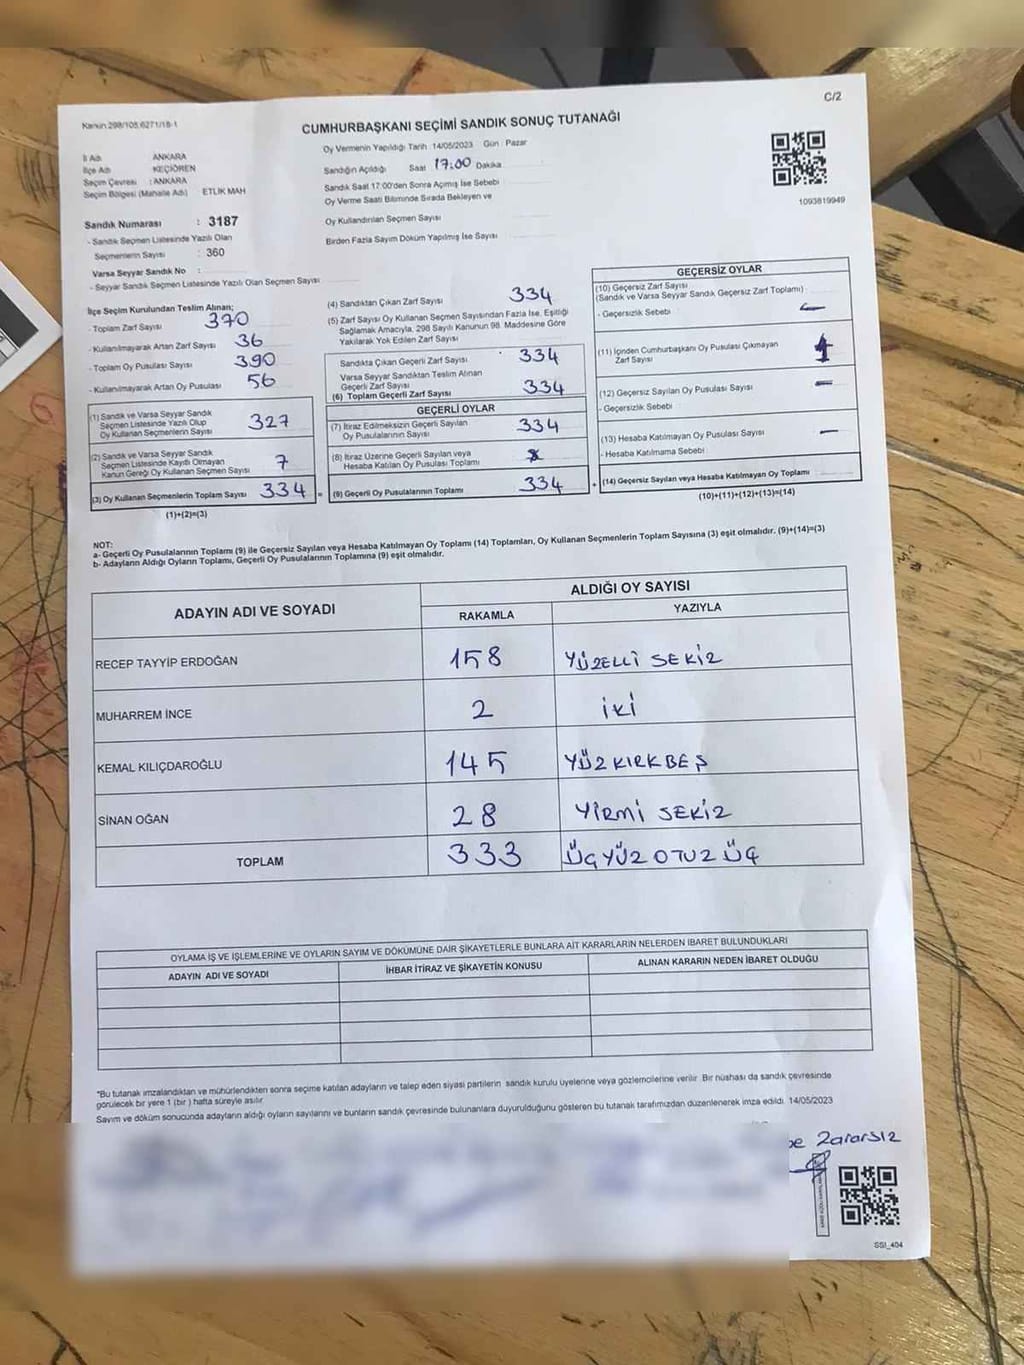 C/2
Kanun 298/105,6271/18-1
CUMHURBAŞKANI SEÇİMİ SANDIK SONUÇ TUTANAĞI
Oy Vermenin Yapıldığı Tarih :14/05/2023 Gün : Pazar
İl Adı ANKARA
İlçe Adı KEÇİÖREN
Seçim Çevresi : ANKARA
Seçim Bölgesi (Mahalle Adı) ETLİK MAH
Sandığın Açıldığı Saat 17:00 Dakika
Sandık Saat 17:00'den Sonra Açımış İse Sebebi
Oy Verme Saati Bitiminde Sırada Bekleyen ve
Oy Kullandırılan Seçmen Sayısı
Birden Fazla Sayım Döküm Yapılmış İse Sayısı
1093819949
Sandık Numarası : 3187
- Sandık Seçmen Listesinde Yazılı Olan
Seçmenlerin Sayısı : 360
Varsa Seyyar Sandık No :
- Seyyar Sandık Seçmen Listesinde Yazılı Olan Seçmen Sayısı
İlçe Seçim Kurulundan Teslim Alınan;
- Toplam Zarf Sayısı 370
- Kullanılmayarak Artan Zarf Sayısı 36
- Toplam Oy Pusulası Sayısı 390
- Kullanılmayarak Artan Oy Pusulası 56
(1) Sandık ve Varsa Seyyar Sandık
Seçmen Listesinde Yazılı Olup
Oy Kullanan Seçmenlerin Sayısı 327
(2) Sandık ve Varsa Seyyar Sandık
Seçmen Listesinde Kayıtlı Olmayan
Kanun Gereği Oy Kullanan Seçmen Sayısı 7
(3) Oy Kullanan Seçmenlerin Toplam Sayısı 334
(1)+(2)=(3)
(4) Sandıktan Çıkan Zarf Sayısı 334
(5) Zarf Sayısı Oy Kullanan Seçmen Sayısından Fazla İse, Eşitliği
Sağlamak Amacıyla, 298 Sayılı Kanunun 98. Maddesine Göre
Yakılarak Yok Edilen Zarf Sayısı
Sandıkta Çıkan Geçerli Zarf Sayısı 334
Varsa Seyyar Sandıktan Teslim Alınan
Geçerli Zarf Sayısı
(6) Toplam Geçerli Zarf Sayısı 334
GEÇERLİ OYLAR
(7) İtiraz Edilmeksizin Geçerli Sayılan
Oy Pusulalarının Sayısı 334
(8) İtiraz Üzerine Geçerli Sayılan veya
Hesaba Katılan Oy Pusulası Toplamı
= (9) Geçerli Oy Pusulalarının Toplamı 334
GEÇERSİZ OYLAR
(10) Geçersiz Zarf Sayısı
(Sandık ve Varsa Seyyar Sandık Geçersiz Zarf Toplamı)
- Geçersizlik Sebebi –
(11) İçinden Cumhurbaşkanı Oy Pusulası Çıkmayan
Zarf Sayısı 1
(12) Geçersiz Sayılan Oy Pusulası Sayısı –
- Geçersizlik Sebebi
(13) Hesaba Katılmayan Oy Pusulası Sayısı –
- Hesaba Katılmama Sebebi
+ (14) Geçersiz Sayılan veya Hesaba Katılmayan Oy Toplamı
(10)+(11)+(12)+(13)=(14)
NOT:
a- Geçerli Oy Pusulalarının Toplamı (9) ile Geçersiz Sayılan veya Hesaba Katılmayan Oy Toplamı (14) Toplamları, Oy Kullanan Seçmenlerin Toplam Sayısına (3) eşit olmalıdır. (9)+(14)=(3)
b- Adayların Aldığı Oyların Toplamı, Geçerli Oy Pusulalarının Toplamına (9) eşit olmalıdır.
ADAYIN ADI VE SOYADI ALDIĞI OY SAYISI
RAKAMLA YAZIYLA
RECEP TAYYİP ERDOĞAN 158 YÜZELLİ SEKİZ
MUHARREM İNCE 2 İKİ
KEMAL KILIÇDAROĞLU 145 YÜZ KIRK BEŞ
SİNAN OĞAN 28 YİRMİ SEKİZ
TOPLAM 333 ÜÇ YÜZ OTUZ ÜÇ
OYLAMA İŞ VE İŞLEMLERİNE VE OYLARIN SAYIM VE DÖKÜMÜNE DAİR ŞİKAYETLERLE BUNLARA AİT KARARLARIN NELERDEN İBARET BULUNDUKLARI
ADAYIN ADI VE SOYADI İHBAR İTİRAZ VE ŞİKAYETİN KONUSU ALINAN KARARIN NEDEN İBARET OLDUĞU
*Bu tutanak imzalandıktan ve mühürlendikten sonra seçime katılan adayların ve talep eden siyasi partilerin sandık kurulu üyelerine veya gözlemcilerine verilir. Bir nüshası da sandık çevresinde
görülecek bir yere 1 (bir ) hafta süreyle asılır.
Sayım ve döküm sonucunda adayların aldığı oyların sayılarını ve bunların sandık çevresinde bulunanlara duyurulduğunu gösteren bu tutanak tarafımızdan düzenlenerek imza edildi. 14/05/2023
be Zararsız
SSI_404